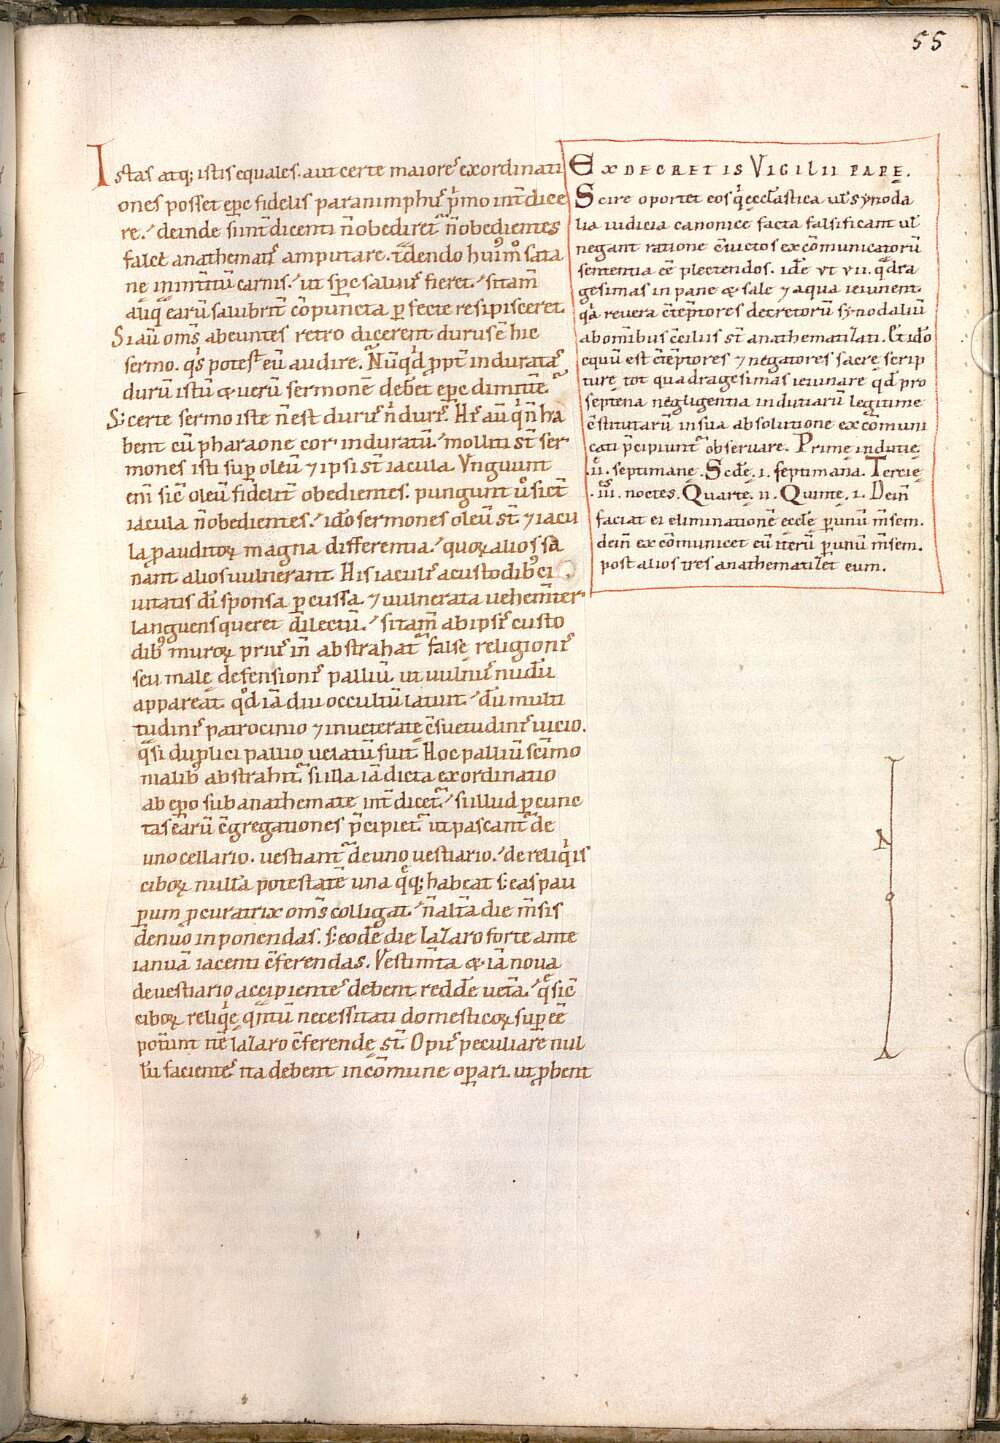 55
Istas atq; istis equales. aut certe maiores exordinati
ones posset epc fidelis paranimphus pͥmo int̄dice
re. deinde sunt̄ dicenti n̄ obediret. n̄ obedientes
falce anathematis amputare. tdendo hui᷒mͦ sata
ne in int̄itū carnis. ut spc saluus fieret. sitam̄
aliq̄ earū salubrit̄ cōpuncta ꝑfecte resipisceret.
Si aū om̄s abeuntes retro dicerent durus ē hic
sermo. qͥs potest eū audire. Nūqͥd ꝓpt̄ induratas
durū istū & uerū sermonē debet epc dimitt̄e
S; certe sermo iste n̄ est durus n̄ duris. Hi aū qͥ n̄ ha
bent cū pharaone cor induratū. molliti st̄ ser
mones isti suꝑ oleū ⁊ ipsi st̄ iacula. Vnguunt
eni᷒m sic̄ oleū fidelit̄ obedientes. pungunt u᷒o sic̄t
iacula n̄ obedientes. idō sermones oleū st̄ ⁊ iacu
la ꝓ auditoꝝ magna differentia. quoꝝ alios sa
nant alios uulnerant. His iaculis a custodib᷒ ci
uitatis dī sponsa ꝑcussa. ⁊ uulnerata uehem̄ter
languens queret dilectū. sitam̄ ab ipsis custo
dib᷒ muroꝝ prius in̄ abstrahat᷒ false religionis
seu male defensionis palliū. ut uulnus nudū
appareat. qd̄ iā diu occultū latuit. dū multi
tudinis patrocinio ⁊ inueterate c̄suetudinis uicio.
q̄si duplici pallio uelatū fuit. Hoc palliū sc̄imo
nialib᷒ abstrahit᷒. si illa iā dicta exordinatio
ab epo sub anathemate int̄dicet᷒. si illud ꝑ cunc
tas earū c̄gregationes p̄cipiet᷒ ut pascant᷒ de
uno cellario. uestiant᷒ de uno uestiario. de reliqͥis
ciboꝝ nulla potestatē una q̄q; habeat. s; eas pau
perum ꝓcuratrix om̄s colligat. n̄ alt̄a die m̄sis
denuo inponendas. s; eodē die lazaro forte ante
ianuā iacenti c̄ferendas. Vestim̄ta & iā nova
de uestiario accipientes debent reddē uet̄a. q̄ sic̄
ciboꝝ reliqͥe qn̄tū necessitati domesticoꝝ suꝑ eē
pot̄unt ite lazaro c̄ferende st̄. Opus peculiare nul
lū facientes ita debent in cōmune oꝑari. ut ꝓbent
Ex decretis Vigilii pape.
Scire oportet eos qͥ eccl̄astica ul̄ synoda
lia iudicia canonice facta falsificant ul̄
negant ratione c̄uictos excōmunicatorū
sententia eē plectendos. idē ut vii. q̄dra
gesimas in pane & sale ⁊ aqua ieiunent.
qͣ reuera c̄tēptores decretorū synodaliū
ab omībus cc̄iliis st̄ anathematizati. Et idō
equū est c̄tēptores ⁊ negatores sacre scrip
ture tot quadragesimas ieiunare qd̄ pro
septena negligentia indutiarū legitime
c̄stitutarū in sua absolutione excōmuni
cati p̄cipiunt᷒ observare. Prime indutie
.ii. septimane. Scde. i. septimana. Tercie
.iii. noctes. Quarte. ii. Quinte. i. Dein̄
faciat ei eliminationē eccl̄e ꝑ unū m̄sem.
dein̄ excōmunicet eū iterū ꝑ unū m̄sem.
post alios tres anathematizet eum.